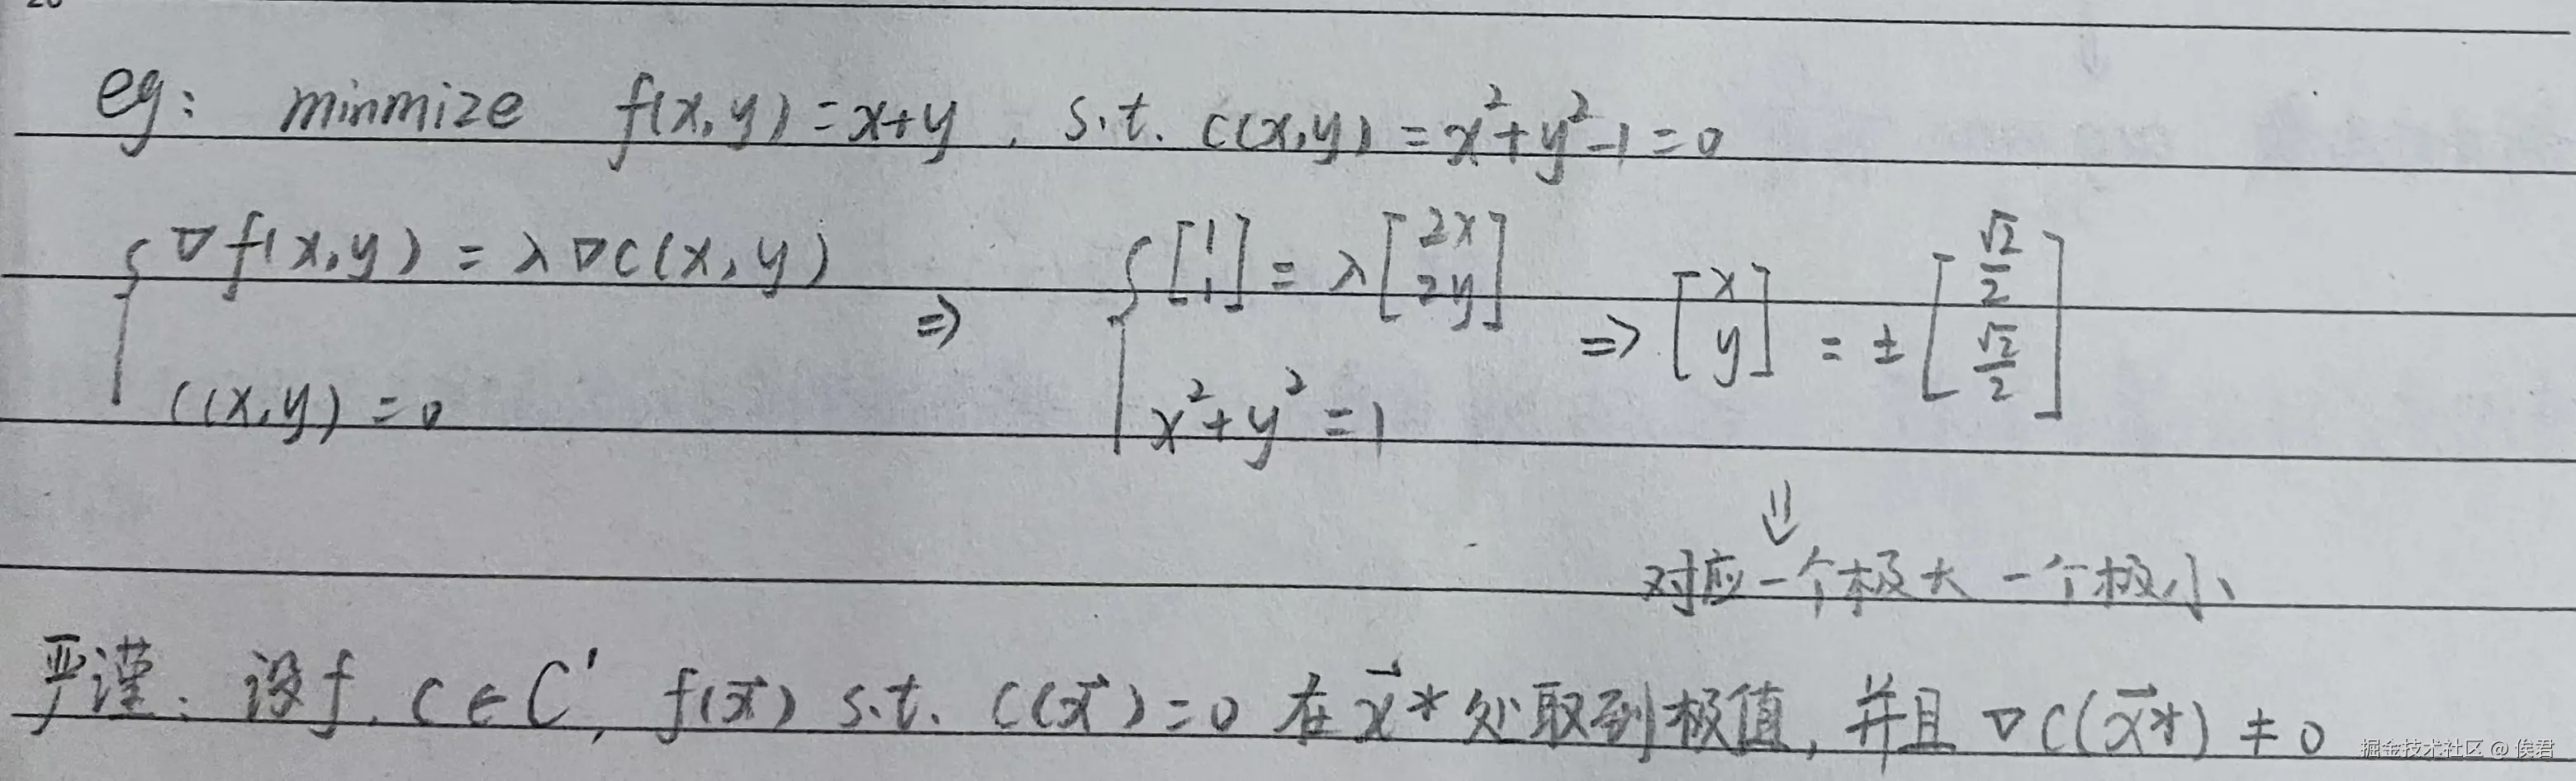 20
eg: minmize f(x,y)=x+y, s.t. c(x,y)=x²+y²-1=0
{ ∇f(x,y)=λ∇c(x,y) c(x,y)=0 ⇒ { [1 1]=λ[2x 2y] x²+y²=1 ⇒ [x y]=±[√2/2 √2/2]
⇓
对应一个极大 一个极小
严谨: 设f, c∈C¹, f(x⃗) s.t. c(x⃗)=0 在x⃗*处取到极值, 并且 ∇c(x⃗*)≠0
掘金技术社区 @ 俟君